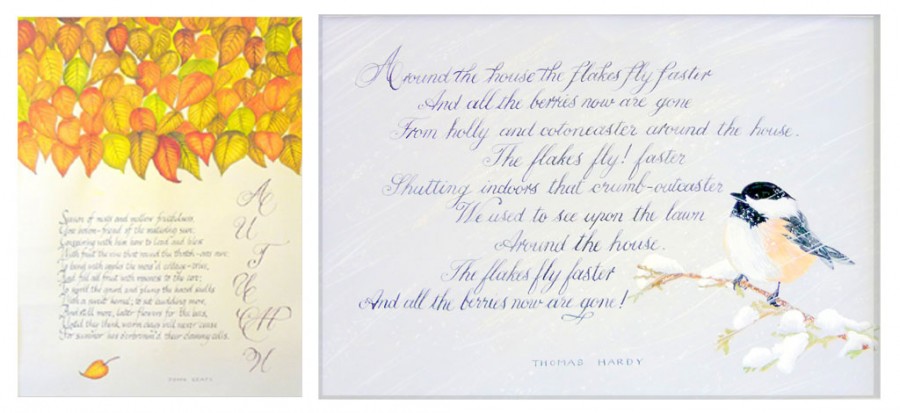 Season of mists and mellow fruitfulness,
Close bosom-friend of the maturing sun;
Conspiring with him how to load and bless
With fruit the vines that round the thatch-eves run;
To bend with apples the moss'd cottage-trees,
And fill all fruit with ripeness to the core;
To swell the gourd, and plump the hazel shells
With a sweet kernel; to set budding more,
And still more, later flowers for the bees,
Until they think warm days will never cease
For summer has o'erbrimm'd their clammy cells.
AUTUMN
JOHN KEATS
Around the house the flakes fly faster
And all the berries now are gone
From holly and cotoneaster around the house.
The flakes fly! faster
Shutting indoors that crumb-outcaster
We used to see upon the lawn
Around the house.
The flakes fly faster
And all the berries now are gone!
THOMAS HARDY